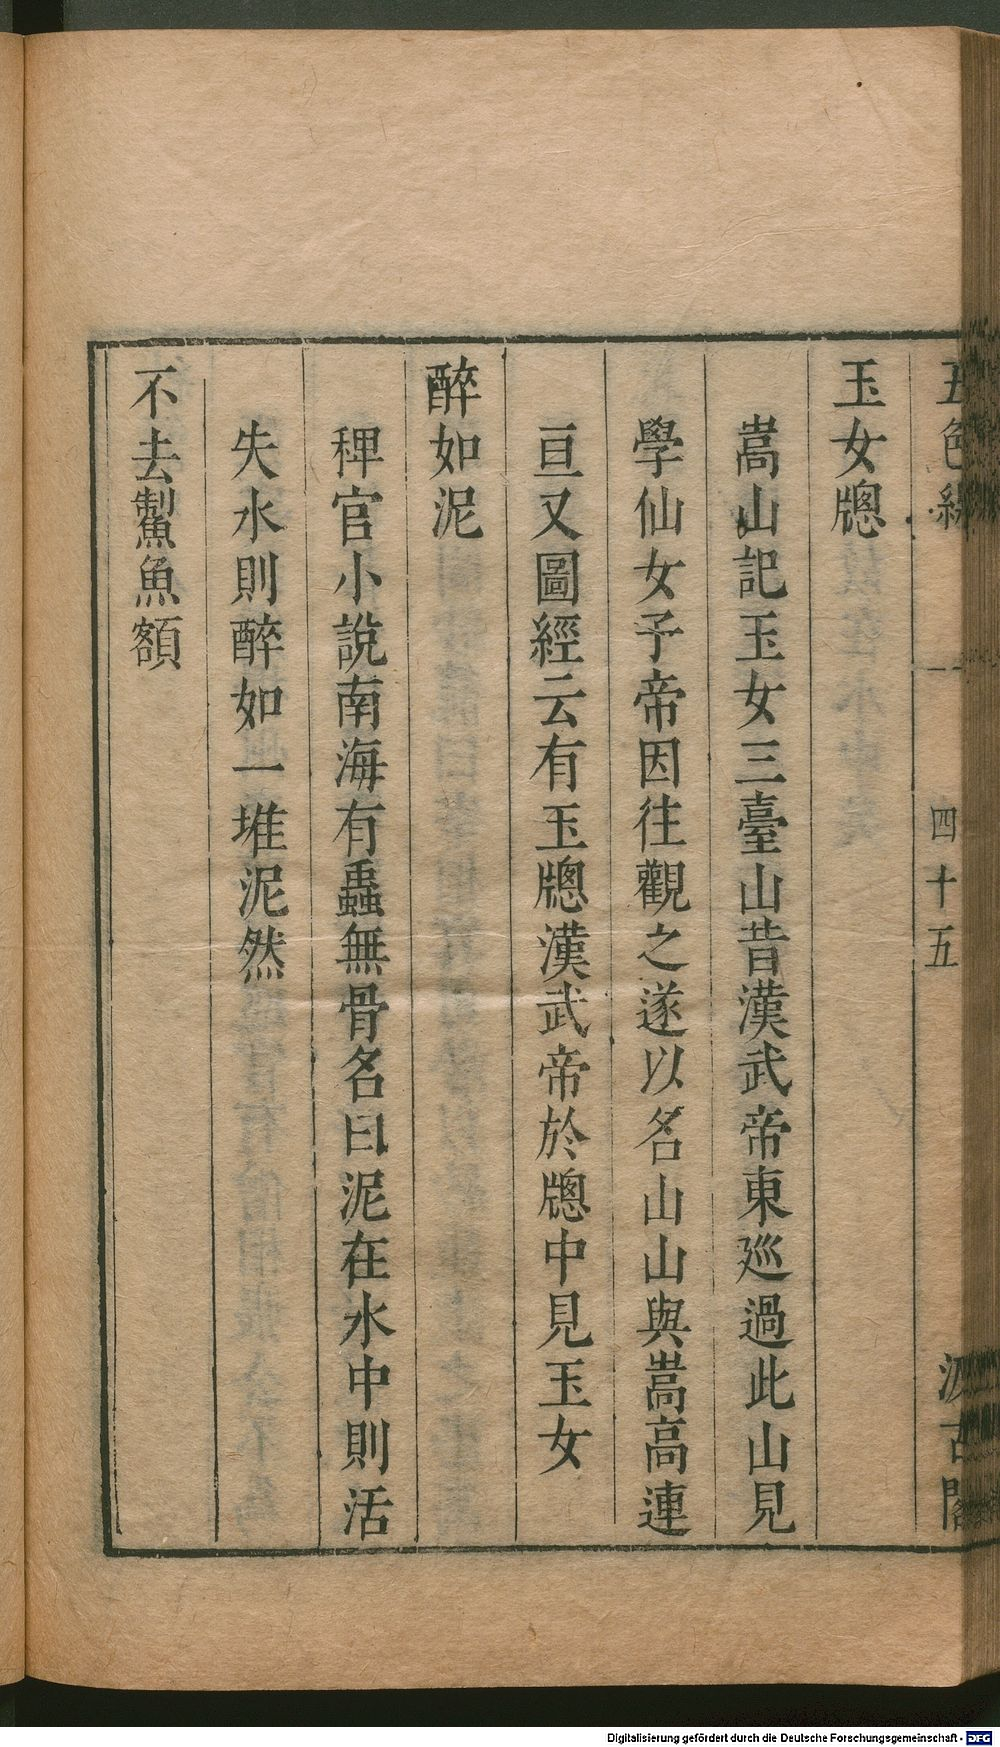 五色線 一 四十五 汲古閣
玉女牕
嵩山記玉女三臺山昔漢武帝東巡過此山見
學仙女子帝因往觀之遂以名山山與嵩高連
亘又圖經云有玉牕漢武帝於牕中見玉女
醉如泥
稗官小說南海有蟲無骨名曰泥在水中則活
失水則醉如一堆泥然
不去鱟魚額
Digitalisierung gefördert durch die Deutsche Forschungsgemeinschaft - DFG